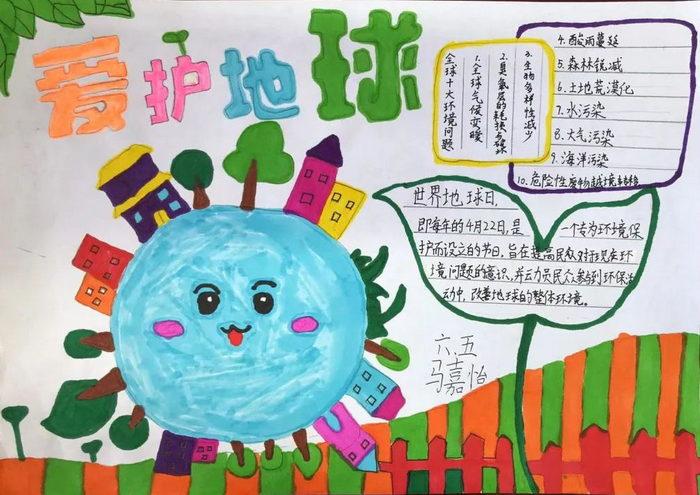 爱护地球
全球十大环境问题
1.全球气候变暖
2.臭氧层的耗损与破坏
3.生物多样性减少
4.酸雨蔓延
5.森林锐减
6.土地荒漠化
7.水污染
8.大气污染
9.海洋污染
10.危险性废物越境转移
世界地球日,
即每年的4月22日,是一个专为环境保
护而设立的节日,旨在提高民众对于现在环
境问题的意识,并动员民众参与到环保活
动中,改善地球的整体环境。
六.五
马嘉怡